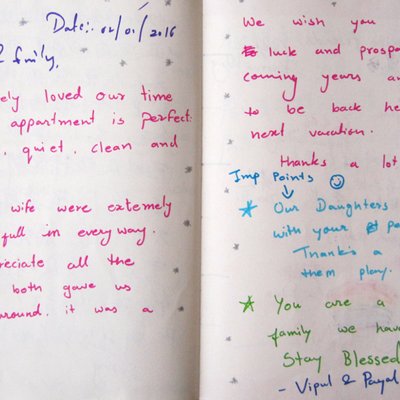 Date:- 02/01/2016
& family,
loved our time
appartment is perfect.
quiet, clean and
wife were extemely
full in every way.
all the
both gave us
around. it was a
We wish you
luck and prosp
coming years an
to be back he
next vacation.
thanks a lot
Imp Points
Our Daughters
with your
Thanks a
them play.
You are a
family we hav
Stay Blessed
- Vipul & Payal